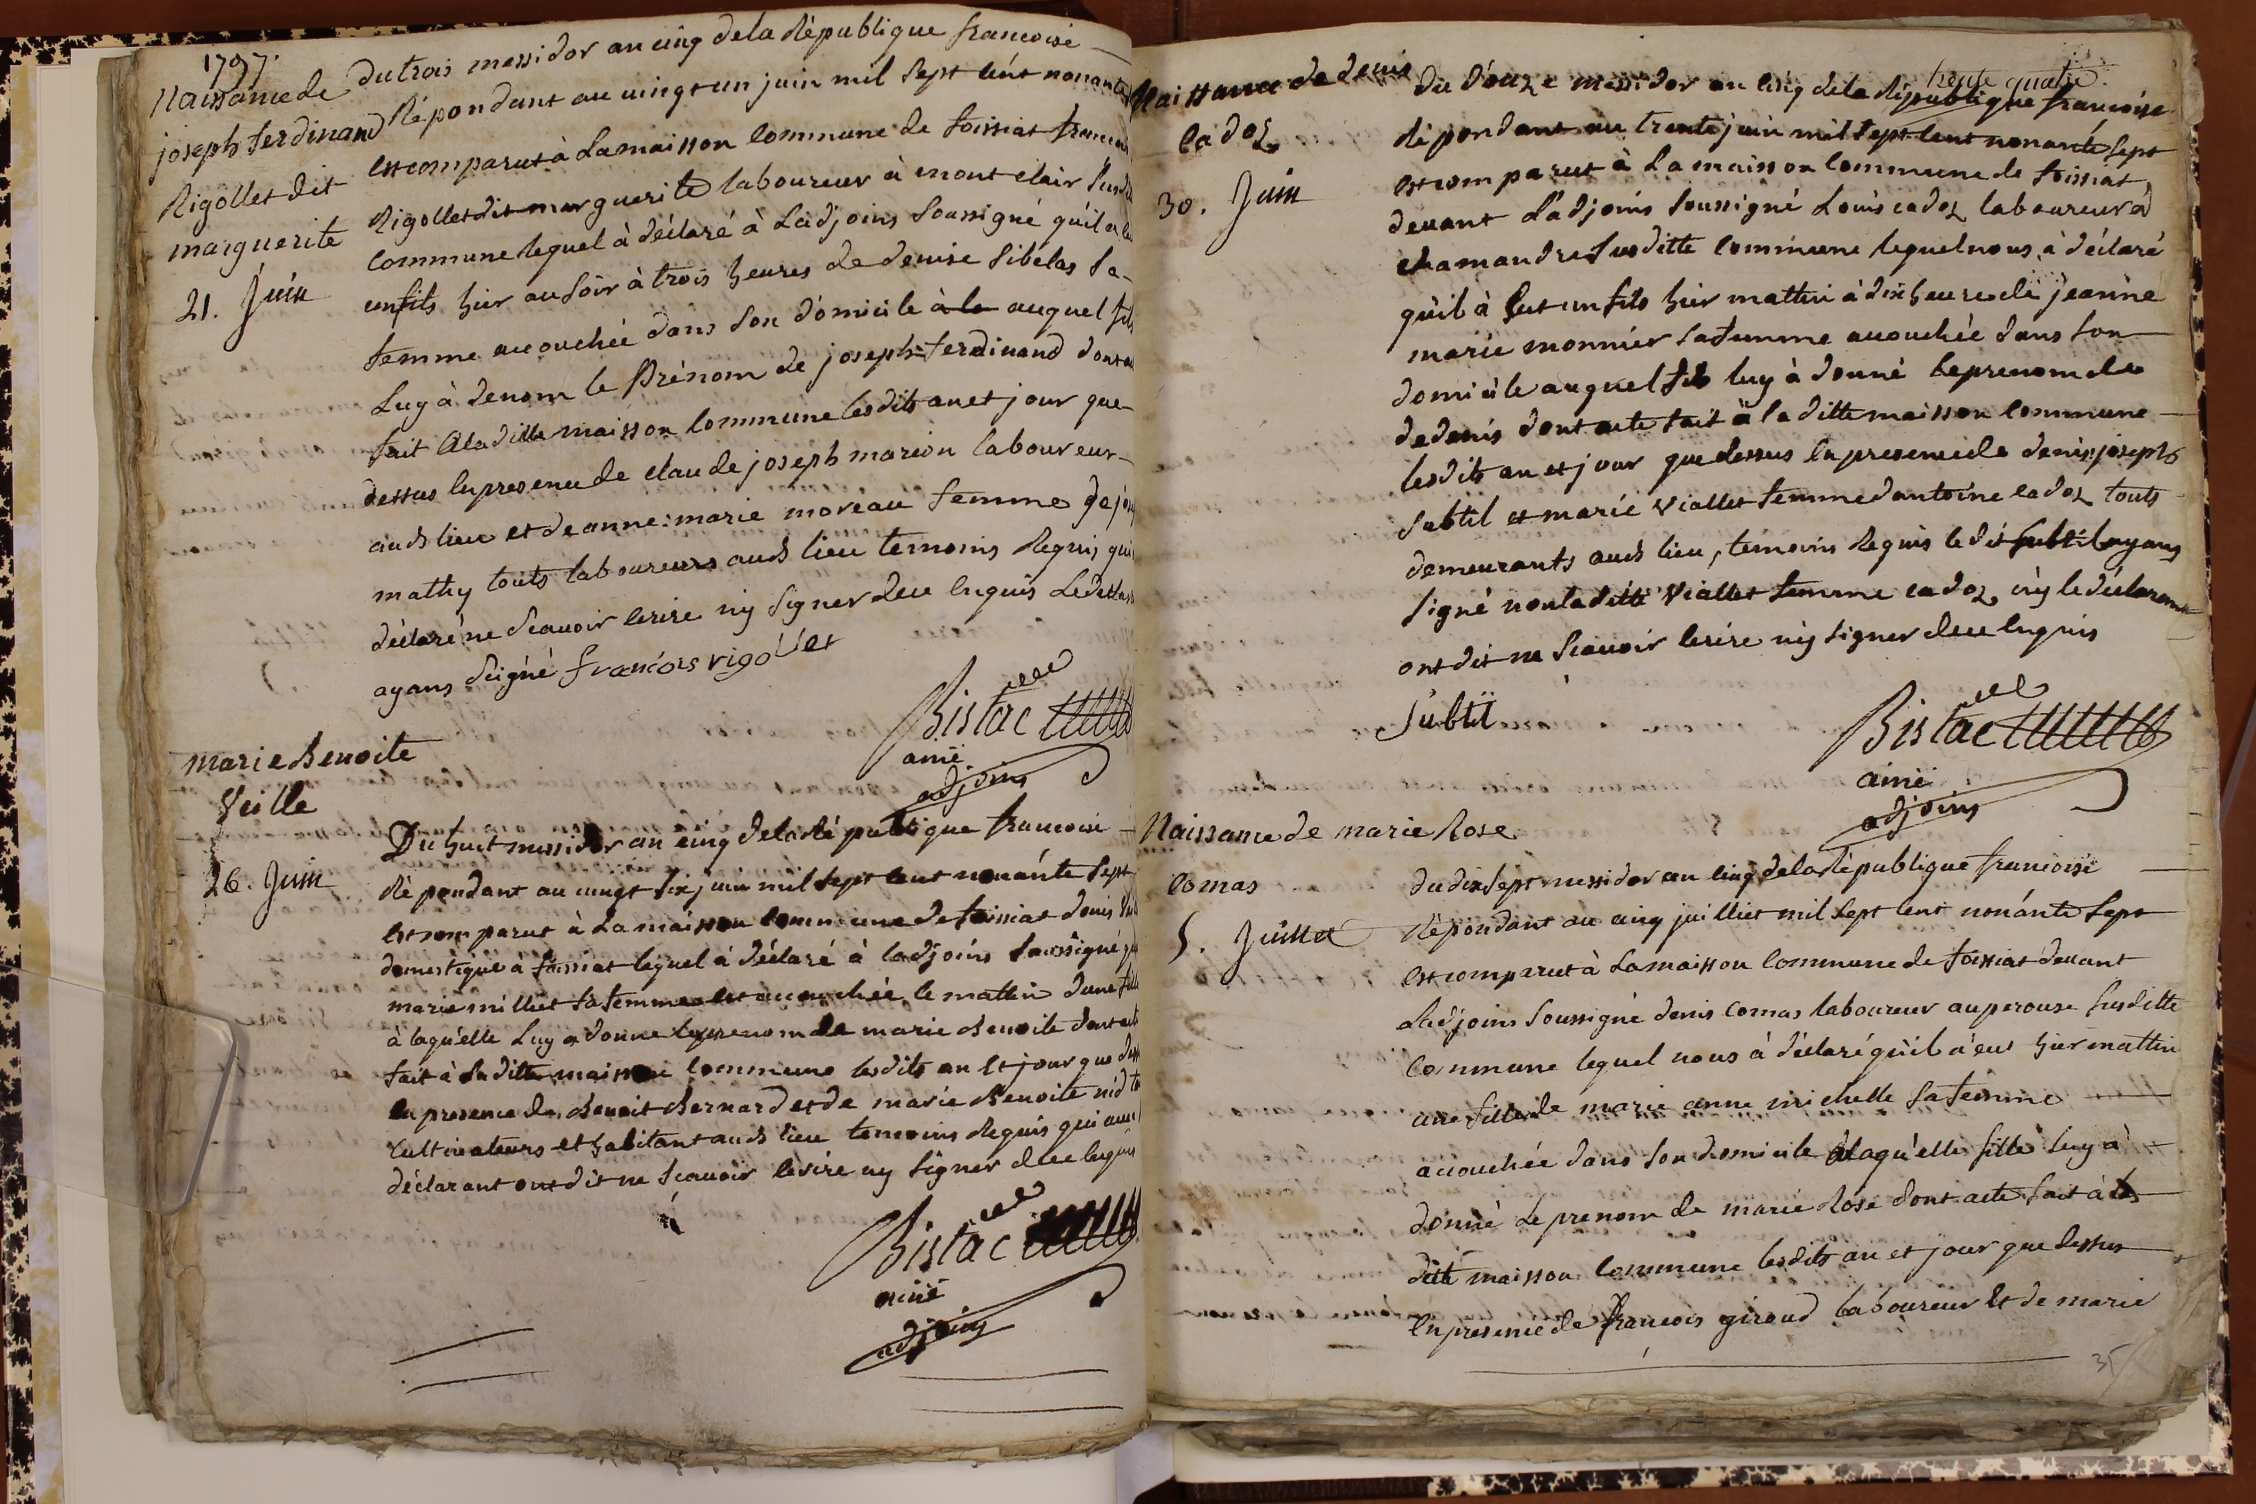 1797.
Naissance de
joseph ferdinand
Rigollet dit
marguerite
21. Juin
du trois messidor an cinq de la République francoise
Répondant au vingt un juin mil sept cént nonante
est comparut à La maisson commune de foissiat francois
Rigollet dit marguerite laboureur à mont clair
commune lequel à déclaré à Ladjoins soussigné qu'il a
un fils hier au soir à trois heures de denise sibelas sa
femme accouchée dans son domicile à la auquel fils
Luy à denom le Prénom de joseph ferdinand dont
fait a la ditte maisson commune lesdits an et jour que
dessus en presence de claude joseph marion laboureur
auds lieu et de anne: marie moreau femme de
mathy touts laboureurs auds lieu temoins Requis qui
déclaré ne scavoir lerire ny signer dece enquis Le
ayans Seigné francois rigollet
Bistac
ainé
adjoins
marie Benoite
Veille
26. Juin
Du huit messidor an cinq dela République francoise
Répondant au vingt six juin mil sept cent nonánte sept
est comparut à La maisson commune de foissiat denis
domestique a foissiat lequel à déclaré à ladjoins Soussigné
marie milliet sa femme est accouchée le mattin dune fille
à laquélle Luy a donne le prenom de marie Benoite dont
fait à La ditte maisson commune lesdits an et jour que
en presence de Benoit Bernard et de marie Benoite nid
cultivateurs et habitant auds lieu temoins Requis qui
déclarant ont dit ne Scavoir lerire ny signer dece
Bistac
ainé
adjoins
trente quatre
Naissance de denis
cadoz
30. Juin
du Douze messidor an cinq de la République francoise
Répondant au trente juin mil sept cent nonante sept
est comparut à La maisson commune de foissiat
devant L'adjoins soussigné Louis cadoz laboureur à
chamandre susditte commune lequel nous à déclaré
qu'il à Eut un fils hier mattin à dix heures de jeanne
marie monnier sa femme accouchée dans son
domicile auquel fils luy à donné le prenom de
de denis dont acte fait à la ditte maisson commune
lesdits an et jour que dessus en presence de denis: joseph
subtil et marie viallet femme dantoine cadoz touts
demeurants auds lieu, temoins Requis le dit subtil ayans
signé non la ditte viallet femme cadoz, ny le déclarant
ont dit ne scavoir lerire ny signer dece enquis
Subtil
Bistac
ainé
adjoins
Naissance de marie Rose
comas
5. Juillet
du dix sept messidor an cinq de la République francoise
Répondant au cinq juilliet mil sept cent nonánte sept
est comparut à La maisson commune de foissiat devant
Ladjoins soussigné denis comas laboureur au perouse susditte
commune lequel nous à déclaré qu'il à eut hier mattin
une fille de marie anne michelle sa femme
accouchée dans son domicile à laqu'elle fille luy à
donné Le prenom de marie Rose dont acte fait à la
ditte maisson commune lesdits an et jour que dessus
en presence de francois giroud laboureur et de marie
35